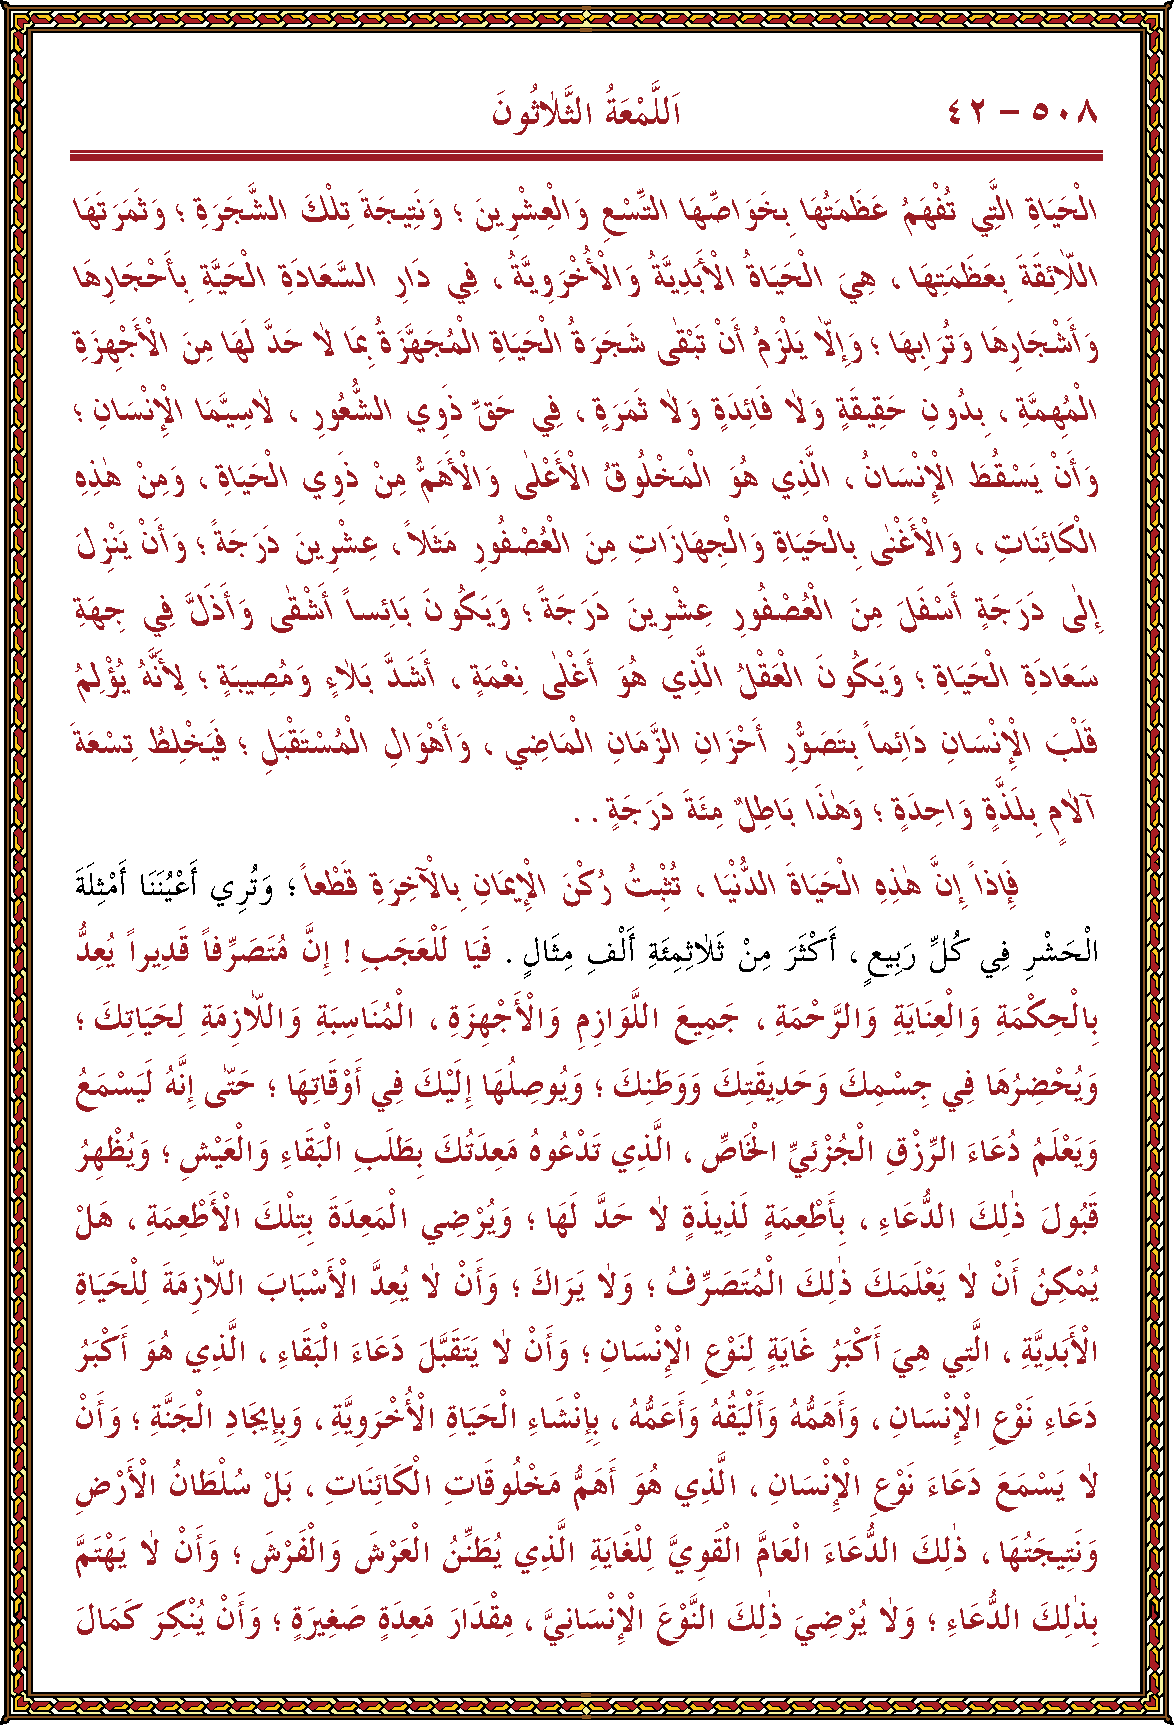 ٥٠٨ - ٤٢ اَللَّمْعَةُ الثَّلَاثُونَ
الْحَيَاةِ الَّتِي تُفْهَمُ عَظَمَتُهَا بِخَوَاصِّهَا التِّسْعِ وَالْعِشْرِينَ ؛ وَنَتِيجَةَ تِلْكَ الشَّجَرَةِ ؛ وَثَمَرَتَهَا
اللَّائِقَةَ بِعَظَمَتِهَا ، هِيَ الْحَيَاةُ الْأَبَدِيَّةُ وَالْأُخْرَوِيَّةُ ، فِي دَارِ السَّعَادَةِ الْحَيَّةِ بِأَحْجَارِهَا
وَأَشْجَارِهَا وَتُرَابِهَا ؛ وَإِلَّا يَلْزَمُ أَنْ تَبْقٰى شَجَرَةُ الْحَيَاةِ الْمُجَهَّزَةُ بِمَا لَا حَدَّ لَهَا مِنَ الْأَجْهِزَةِ
الْمُهِمَّةِ ، بِدُونِ حَقِيقَةٍ وَلَا فَائِدَةٍ وَلَا ثَمَرَةٍ ، فِي حَقِّ ذَوِي الشُّعُورِ ، لَاسِيَّمَا الْإِنْسَانِ ؛
وَأَنْ يَسْقُطَ الْإِنْسَانُ ، الَّذِي هُوَ الْمَخْلُوقُ الْأَعْلٰى وَالْأَهَمُّ مِنْ ذَوِي الْحَيَاةِ ، وَمِنْ هٰذِهِ
الْكَائِنَاتِ ، وَالْأَغْنٰى بِالْحَيَاةِ وَالْجِهَازَاتِ مِنَ الْعُصْفُورِ مَثَلاً ، عِشْرِينَ دَرَجَةً ؛ وَأَنْ يَنْزِلَ
إِلٰى دَرَجَةٍ أَسْفَلَ مِنَ الْعُصْفُورِ عِشْرِينَ دَرَجَةً ؛ وَيَكُونَ بَائِساً أَشْقٰى وَأَذَلَّ فِي جِهَةِ
سَعَادَةِ الْحَيَاةِ ؛ وَيَكُونَ الْعَقْلُ الَّذِي هُوَ أَعْلٰى نِعْمَةٍ ، أَشَدَّ بَلَاءٍ وَمُصِيبَةٍ ؛ لِأَنَّهُ يُؤْلِمُ
قَلْبَ الْإِنْسَانِ دَائِماً بِتَصَوُّرِ أَحْزَانِ الزَّمَانِ الْمَاضِي ، وَأَهْوَالِ الْمُسْتَقْبَلِ ؛ فَيَخْلِطُ تِسْعَةَ
آلَامٍ بِلَذَّةٍ وَاحِدَةٍ ؛ وَهٰذَا بَاطِلٌ مِئَةَ دَرَجَةٍ . .
فَإِذاً إِنَّ هٰذِهِ الْحَيَاةَ الدُّنْيَا ، تُثْبِتُ رُكْنَ الْإِيمَانِ بِالْآخِرَةِ قَطْعاً ؛ وَتُرِي أَعْيُنَنَا أَمْثِلَةَ
الْحَشْرِ فِي كُلِّ رَبِيعٍ ، أَكْثَرَ مِنْ ثَلَاثِمِئَةِ أَلْفِ مِثَالٍ . فَيَا لَلْعَجَبِ ! إِنَّ مُتَصَرِّفاً قَدِيراً يُعِدُّ
بِالْحِكْمَةِ وَالْعِنَايَةِ وَالرَّحْمَةِ ، جَمِيعَ اللَّوَازِمِ وَالْأَجْهِزَةِ ، الْمُنَاسِبَةِ وَاللَّازِمَةِ لِحَيَاتِكَ ؛
وَيُحْضِرُهَا فِي جِسْمِكَ وَحَدِيقَتِكَ وَوَطَنِكَ ؛ وَيُوصِلُهَا إِلَيْكَ فِي أَوْقَاتِهَا ؛ حَتّٰى إِنَّهُ لَيَسْمَعُ
وَيَعْلَمُ دُعَاءَ الرِّزْقِ الْجُزْئِيِّ الْخَاصِّ ، الَّذِي تَدْعُوهُ مَعِدَتُكَ بِطَلَبِ الْبَقَاءِ وَالْعَيْشِ ؛ وَيُظْهِرُ
قَبُولَ ذٰلِكَ الدُّعَاءِ ، بِأَطْعِمَةٍ لَذِيذَةٍ لَا حَدَّ لَهَا ؛ وَيُرْضِي الْمَعِدَةَ بِتِلْكَ الْأَطْعِمَةِ ، هَلْ
يُمْكِنُ أَنْ لَا يَعْلَمَكَ ذٰلِكَ الْمُتَصَرِّفُ ؛ وَلَا يَرَاكَ ؛ وَأَنْ لَا يُعِدَّ الْأَسْبَابَ اللَّازِمَةَ لِلْحَيَاةِ
الْأَبَدِيَّةِ ، الَّتِي هِيَ أَكْبَرُ غَايَةٍ لِنَوْعِ الْإِنْسَانِ ؛ وَأَنْ لَا يَتَقَبَّلَ دَعَاءَ الْبَقَاءِ ، الَّذِي هُوَ أَكْبَرُ
دَعَاءِ نَوْعِ الْإِنْسَانِ ، وَأَهَمُّهُ وَأَلْيَقُهُ وَأَعَمُّهُ ، بِإِنْشَاءِ الْحَيَاةِ الْأُخْرَوِيَّةِ ، وَبِإِيجَادِ الْجَنَّةِ ؛ وَأَنْ
لَا يَسْمَعَ دَعَاءَ نَوْعِ الْإِنْسَانِ ، الَّذِي هُوَ أَهَمُّ مَخْلُوقَاتِ الْكَائِنَاتِ ، بَلْ سُلْطَانُ الْأَرْضِ
وَنَتِيجَتُهَا ، ذٰلِكَ الدُّعَاءَ الْعَامَّ الْقَوِيَّ لِلْغَايَةِ الَّذِي يُطَنِّنُ الْعَرْشَ وَالْفَرْشَ ؛ وَأَنْ لَا يَهْتَمَّ
بِذٰلِكَ الدُّعَاءِ ؛ وَلَا يُرْضِيَ ذٰلِكَ النَّوْعَ الْإِنْسَانِيَّ ، مِقْدَارَ مَعِدَةٍ صَغِيرَةٍ ؛ وَأَنْ يُنْكِرَ كَمَالَ